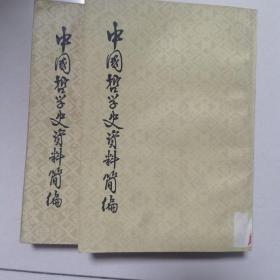 中國哲学史资料简编
中國哲学史资料简编